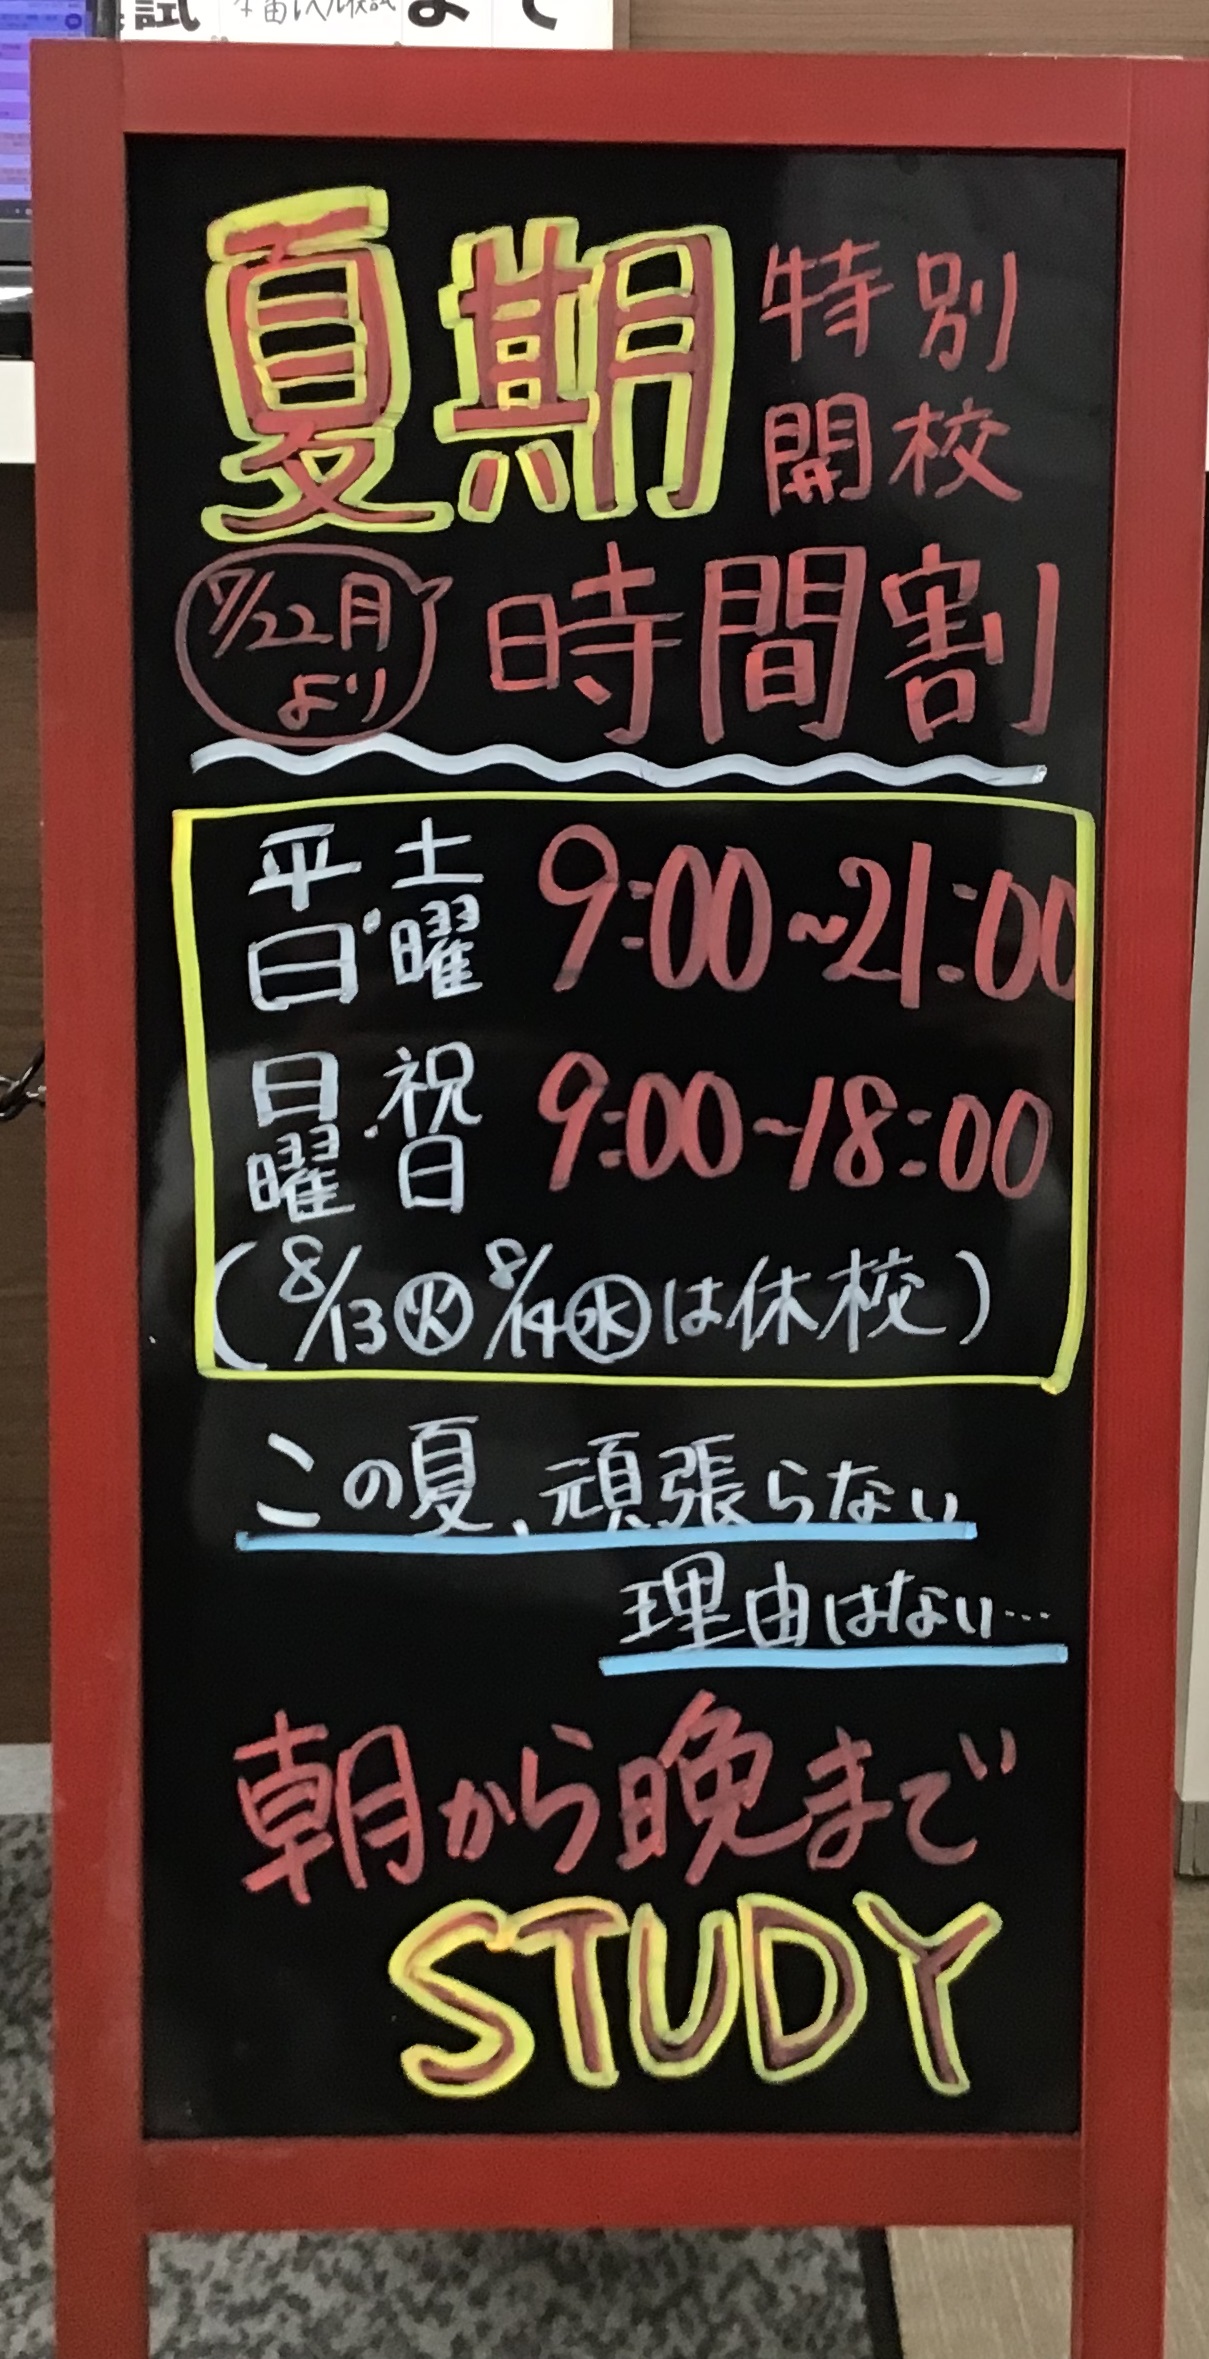 試
まで
夏期 特別
開校
7/22月
より
時間割
平日・土曜 9:00~21:00
日曜・祝日 9:00~18:00
(8/13㊋ 8/14㊌は休校)
この夏、頑張らない
理由はない…
朝から晩まで
STUDY